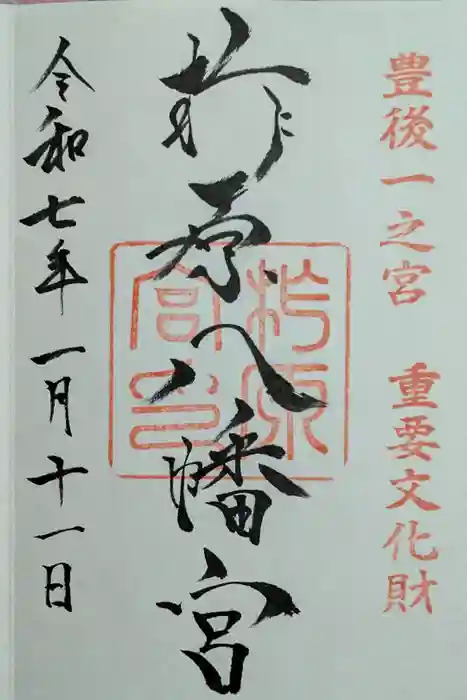 豊後一之宮 重要文化財
柞原八幡宮
柞原
宮印
令和七年一月十一日